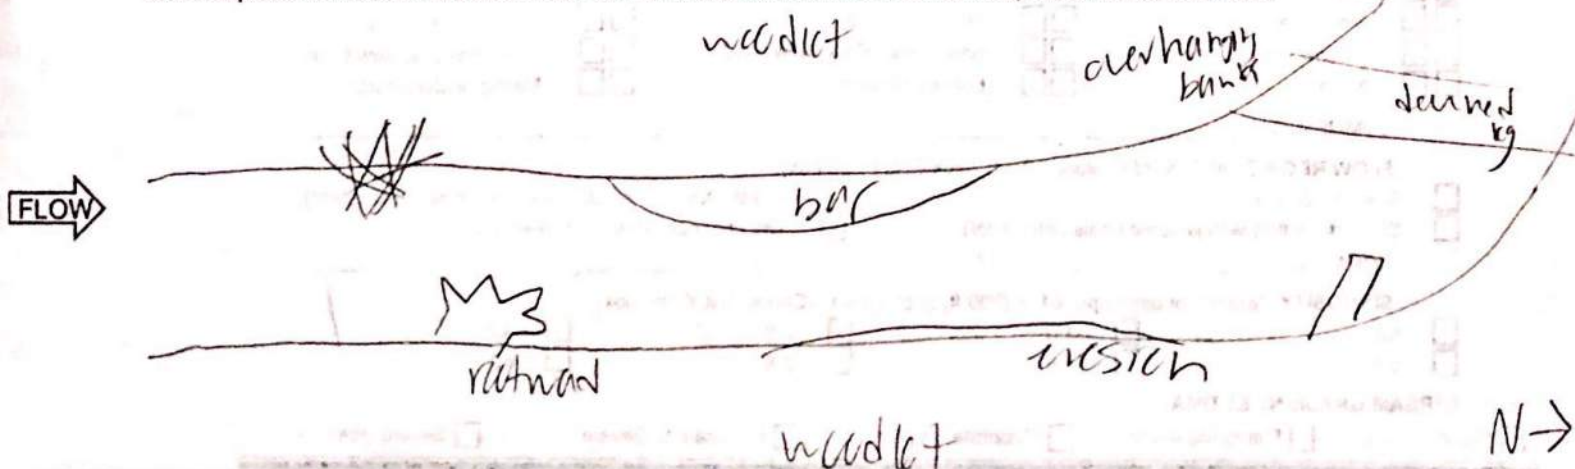 woodlot
overhanging
banks
downed
log
FLOW
bar
rootwad
erosion
woodlot
N→